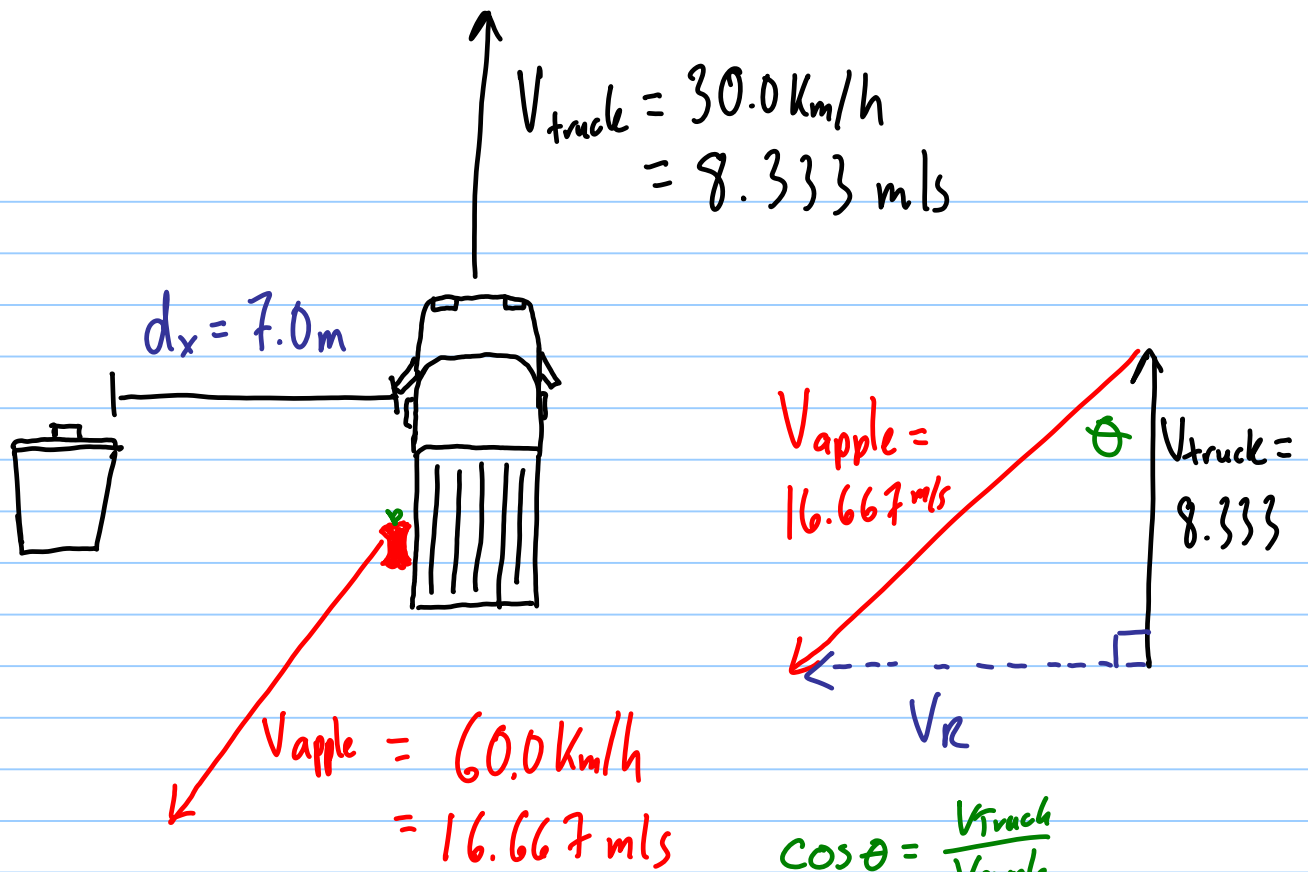 V_truck = 30.0 Km/h
= 8.333 m/s
d_x = 7.0m
V_apple =
16.667 m/s
θ
V_truck =
8.333
V_R
V_apple = 60.0 Km/h
= 16.667 m/s
cosθ = V_Truck